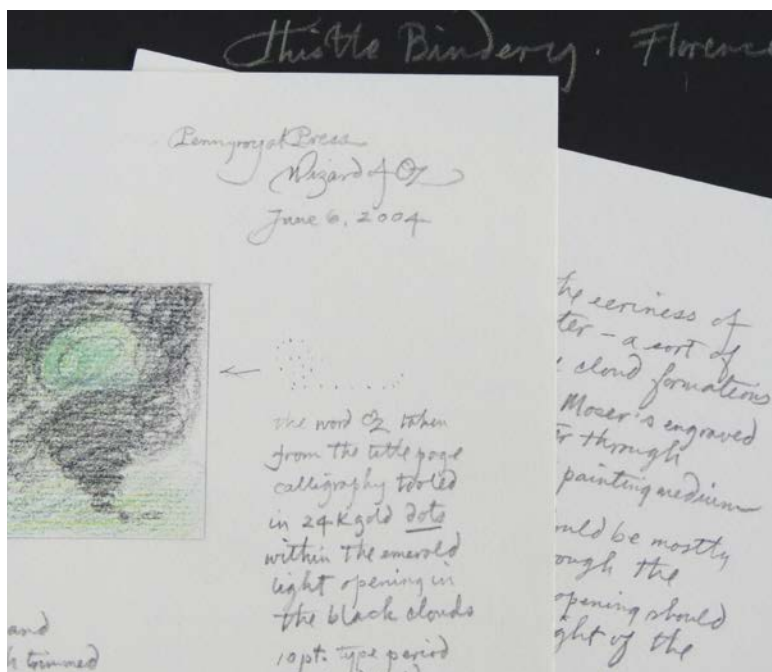 Thistle Bindery. Florence
Pennyroyal Press
Wizard of Oz
June 6, 2004
the word Oz taken
from the title page
calligraphy tooled
in 24K gold dots
within the emerald
light opening in
the black clouds
10 pt. type period
and
trimmed
the eeriness of
ter – a sort of
cloud formations
Moser's engraved
through
painting medium
ould be mostly
ough the
opening should
ght of the